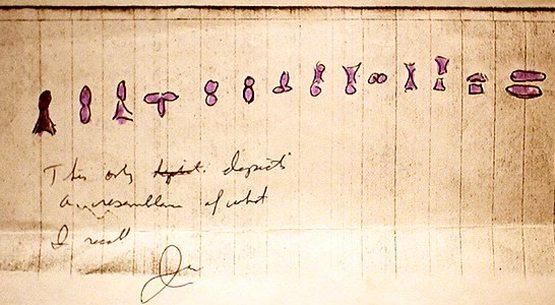 This only depicts
a resemblance of what
I recall